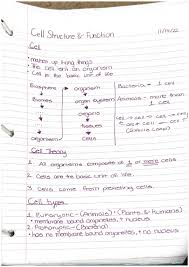 Cell Structure & Function
11/14/22
Cell
• makes up living things
• The cell isn't an organism
• Cell is the basic unit of life
Biosphere organism Bacteria = 1 cell
organ system Animals = more than 1 cell
organs
tissues
cell
Cell Theory
1. All organisms composed of 1 or more cells
2. Cells are the basic unit of life.
3. Cells come from preexisting cells
Cell types
1. Eukaryotic - (Animals) - (Plants & Humans)
membrane bound organelles, + nucleus
2. Prokaryotic - (Bacteria)
• has no membrane bound organelles, + no nucleus